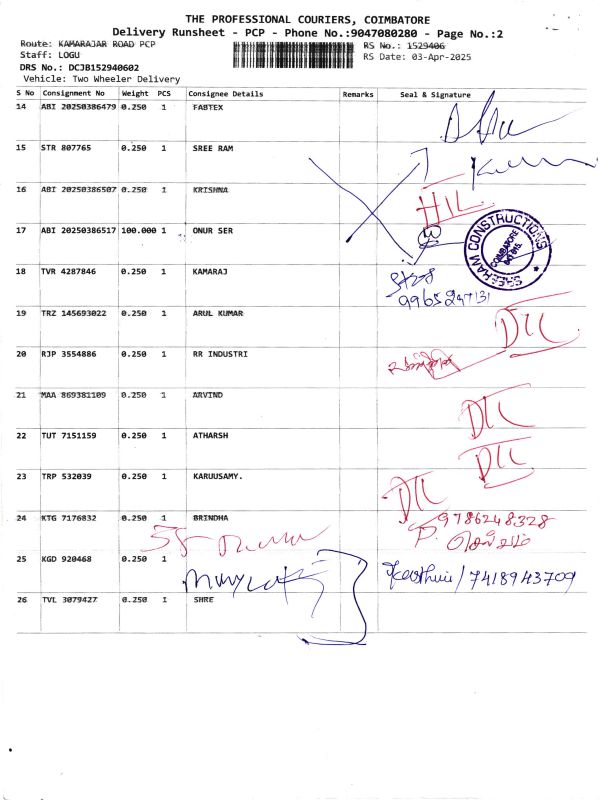 THE PROFESSIONAL COURIERS, COIMBATORE
Delivery Runsheet - PCP - Phone No.:9047080280 - Page No.:2
Route: KAMARAJAR ROAD PCP
RS No.: 1529406
Staff: LOGU
RS Date: 03-Apr-2025
DRS No.: DCJB152940602
Vehicle: Two Wheeler Delivery
S No Consignment No Weight PCS Consignee Details Remarks Seal & Signature
14 ABI 20250386479 0.250 1 FABTEX
15 STR 807765 0.250 1 SREE RAM
16 ABI 20250386507 0.250 1 KRISHNA
17 ABI 20250386517 100.000 1 ONUR SER
SREERAM CONSTRUCTIONS
COIMBATORE
18 TVR 4287846 0.250 1 KAMARAJ
9965247131
19 TRZ 145693022 0.250 1 ARUL KUMAR
20 RJP 3554886 0.250 1 RR INDUSTRI
21 MAA 869381109 0.250 1 ARVIND
22 TUT 7151159 0.250 1 ATHARSH
23 TRP 532039 0.250 1 KARUUSAMY.
24 KTG 7176832 0.250 1 BRINDHA
9786248328
25 KGD 920468 0.250 1
7418943709
26 TVL 3079427 0.250 1 SHRE